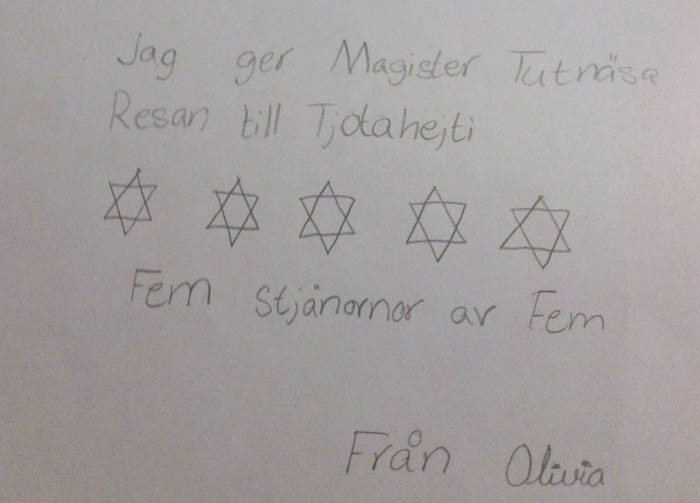 Jag ger Magister Tutnäsa
Resan till Tjotahejti
Fem Stjänornor av Fem
Från Olivia